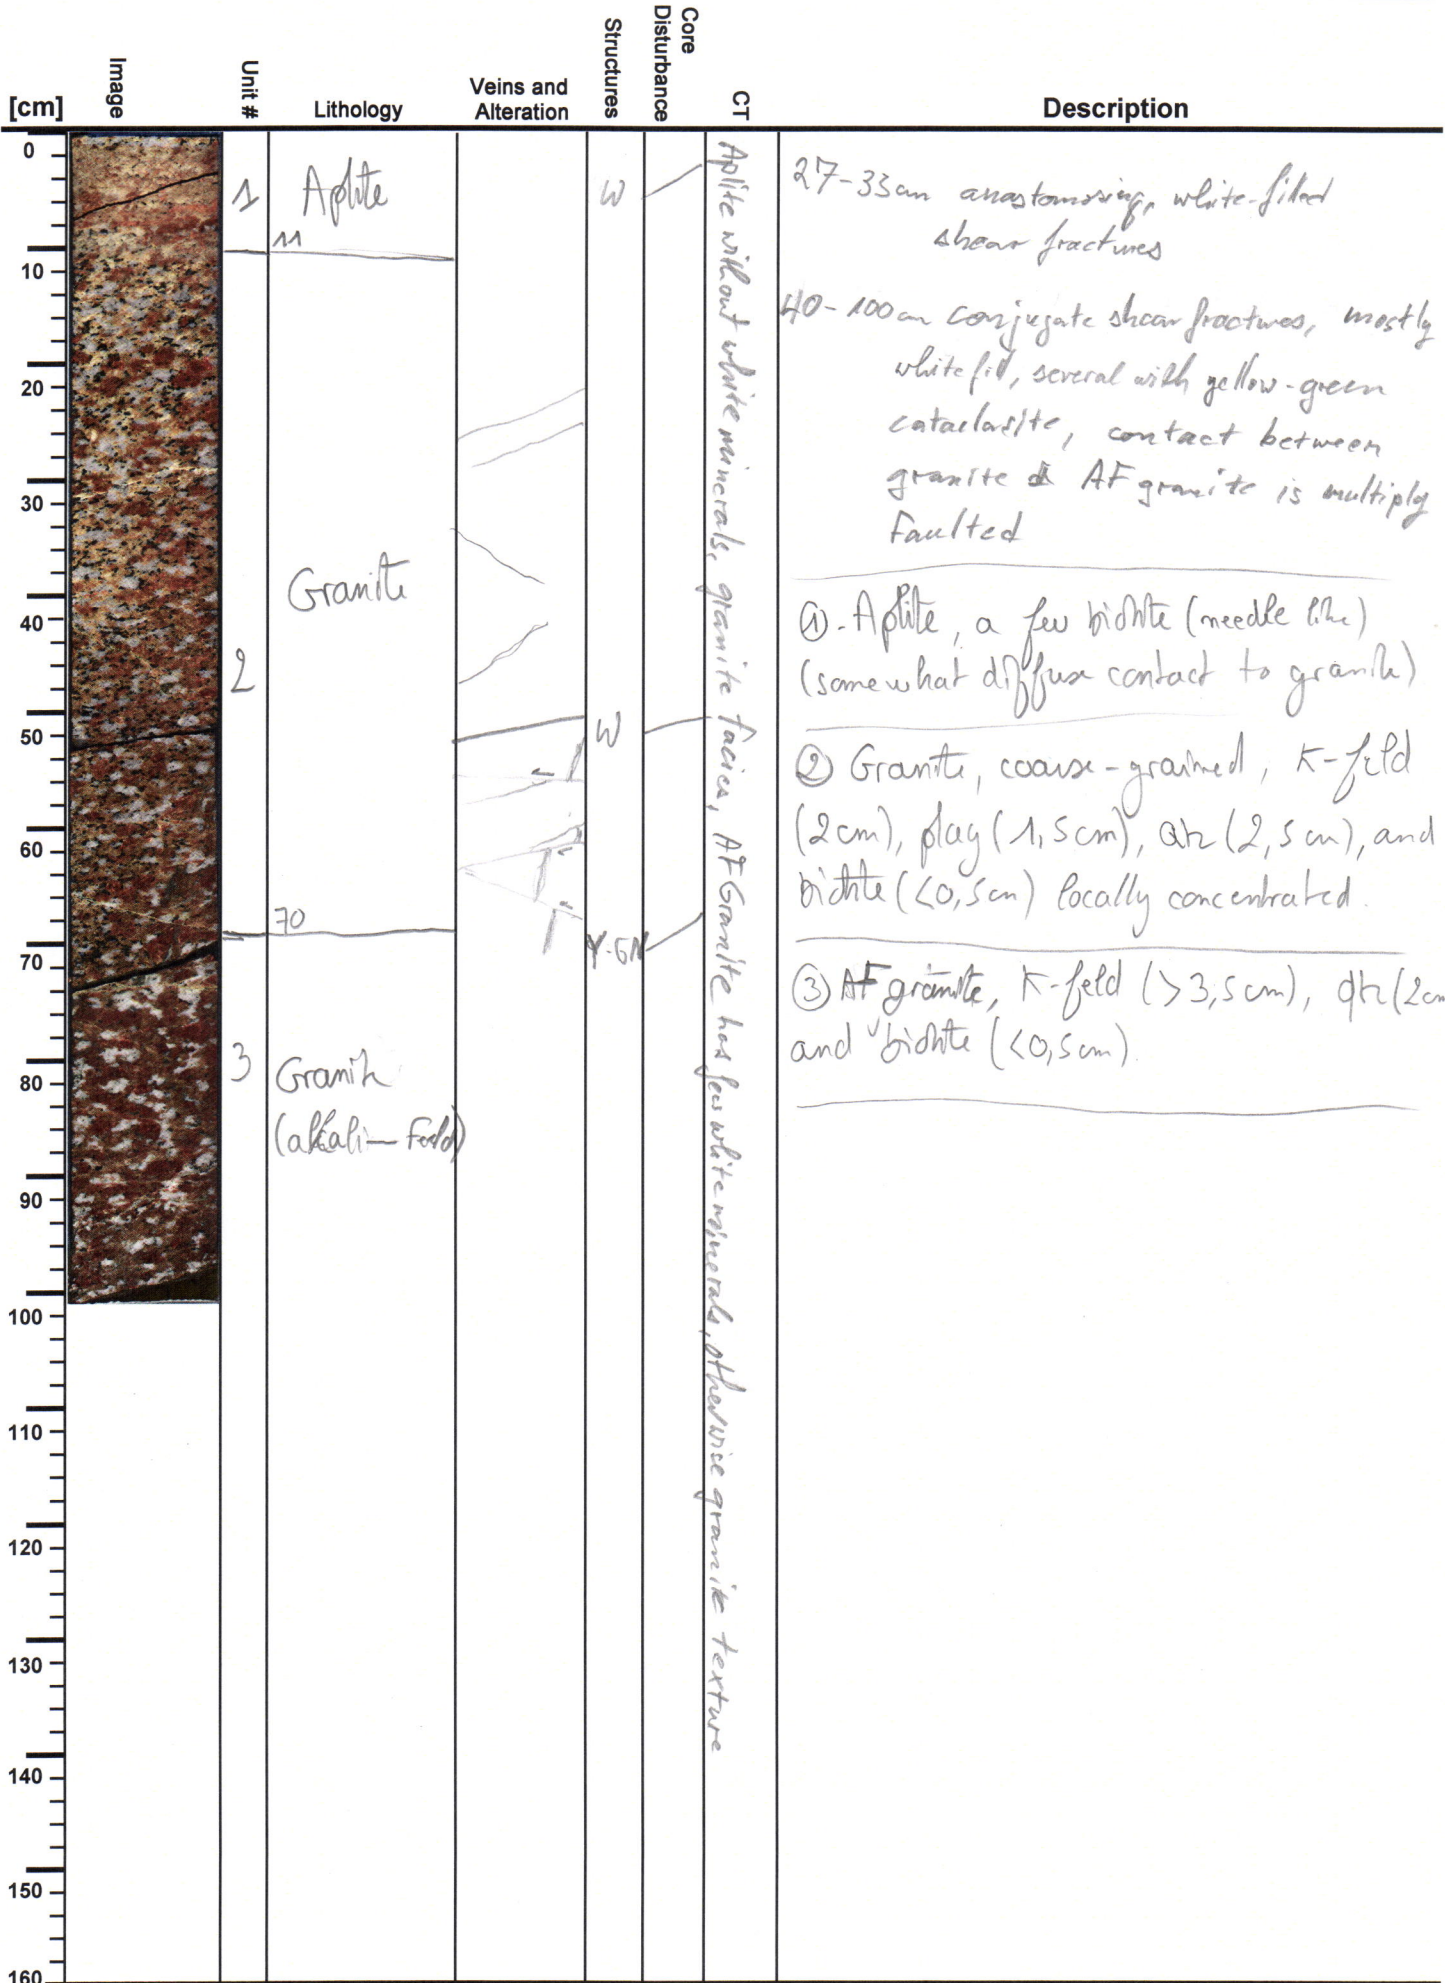 [cm]
Image
Unit #
Lithology
Veins and
Alteration
Structures
Core
Disturbance
CT
Description
0
10
20
30
40
50
60
70
80
90
100
110
120
130
140
150
160
1
Aplite
11
2
Granite
70
3
Granite
(alkali-Feld)
W
W
Y-GN
Aplite without white minerals, granite facies, AF Granite has few white minerals, otherwise granite texture
27-33cm anastomosing, white-filled
shear fractures
40-100cm conjugate shear fractures, mostly
white fill, several with yellow-green
cataclasite, contact between
granite & AF granite is multiply
Faulted
① - Aplite, a few biotite (needle like)
(somewhat diffuse contact to granite)
② Granite, coarse-grained, K-feld
(2cm), plag (1,5cm), qtz (2,5cm), and
biotite (<0,5cm) locally concentrated.
③ AF granite, K-feld (>3,5cm), qtz (2cm
and biotite (<0,5cm).